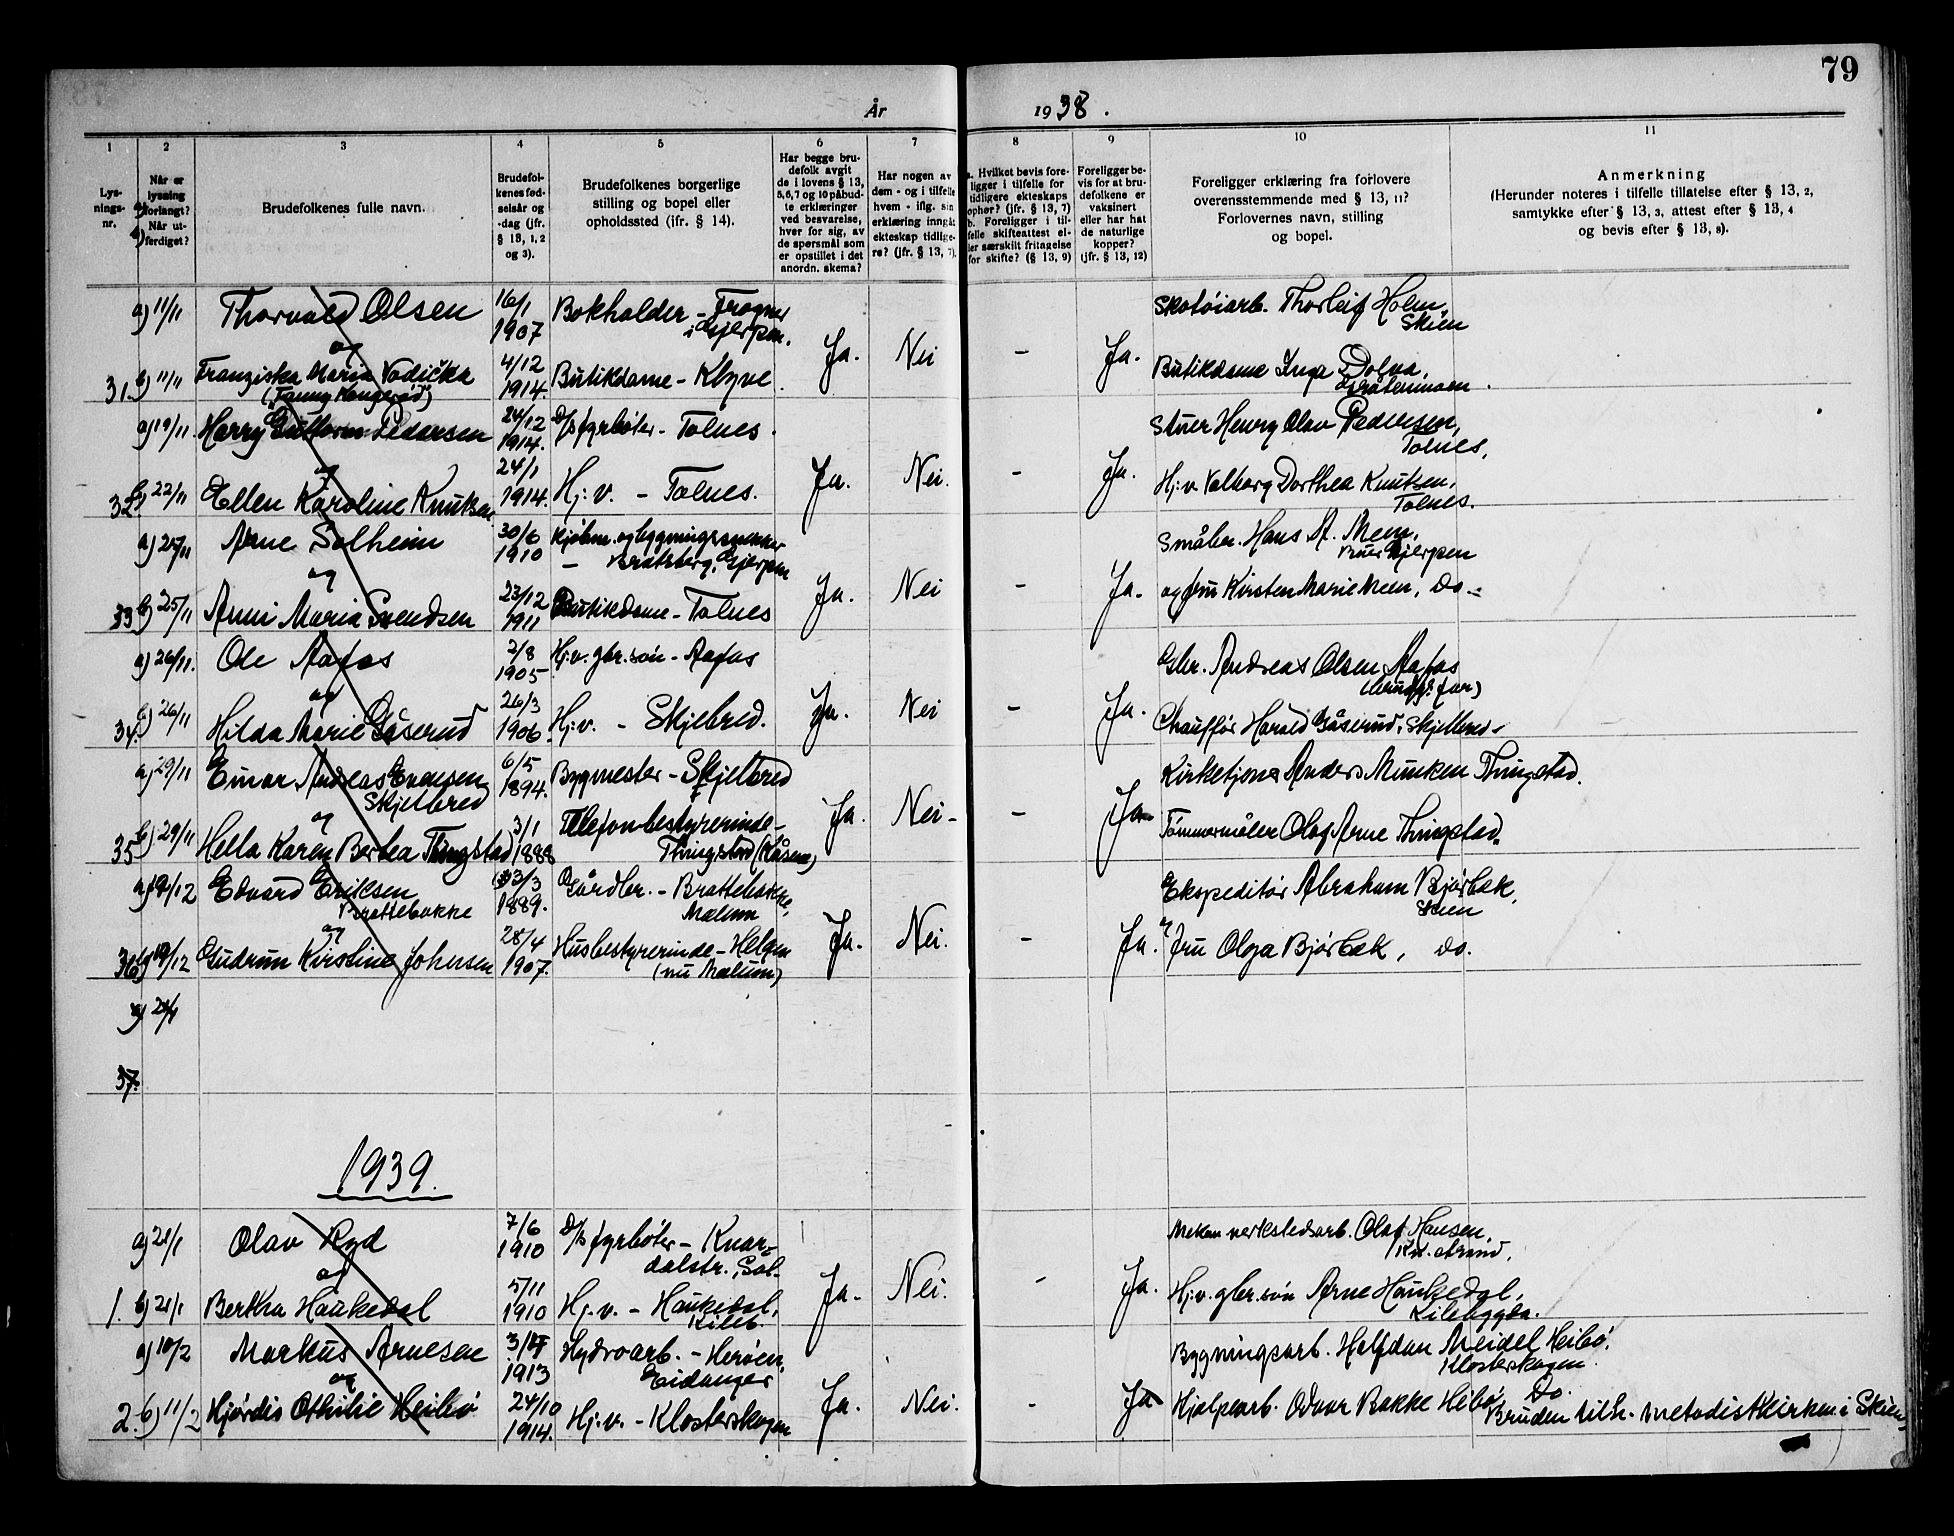 79
År 1938.
1
Lys-
nings-
nr.
2
Når er
lysning
a) forlangt?
Når ut-
b) ferdiget?
3
Brudefolkenes fulle navn.
4
Brudefol-
kenes fød-
selsår og
-dag (jfr.
§ 13, 1, 2
og 3).
5
Brudefolkenes borgerlige
stilling og bopel eller
opholdssted (jfr. § 14).
6
Har begge bru-
defolk avgit
de i lovens § 13,
5, 6, 7 og 10 påbud-
te erklæringer
ved besvarelse,
hver for sig, av
de spørsmål som
er opstillet i det
anordn. skema?
7
Har nogen av
dem - og i tilfelle
hvem - iflg. sin
erklæring inngått
ekteskap tidlige-
re? (jfr. § 13, 7).
8
a. Hvilket bevis fore-
ligger i tilfelle for
tidligere ekteskaps
ophør? (jfr. § 13, 7)
b. Foreligger i til-
felle skifteattest el-
ler særskilt fritagelse
for skifte? (§ 13, 9)
9
Foreligger be-
vis for at bru-
defolkene er
vaksinert
eller har hat
de naturlige
kopper?
(jfr. § 13, 12)
10
Foreligger erklæring fra forlovere
overensstemmende med § 13, 11?
Forlovernes navn, stilling
og bopel.
11
Anmerkning
(Herunder noteres i tilfelle tillatelse efter § 13, 2,
samtykke efter § 13, 3, attest efter § 13, 4
og bevis efter § 13, 8).
a) 11/11 Thorvald Olsen 16/1 1907 Bokholder - Frogner
i Gjerpen.
Skotøiarb. Thorleif Holm,
Skien
og
31. b) 11/11 Franziska Maria Vodička 4/12 1914. Butikdame - Klyve. Ja. Nei - Ja. Butikdame Inga Dolva,
(Fanny Kongerød) Gråtenmoen.
a) 19/11. Harry Guttorm Pedersen 24/12 1914. D/s fyrbøter - Tolnes. Stuer Henry Olav Pedersen,
Tolnes,
og
32. b) 22/11 Ellen Karoline Knutsen 24/1 1914. Hj.v. - Tolnes. Ja. Nei. - Ja. Hj.v. Valborg Dorthea Knutsen,
Tolnes.
a) 25/11 Arne Solheim 30/6 1910 Kjøbm. og bygningssnekker
- Bratsberg, Gjerpen
Småbr. Hans A. Mem,
Gjerpen
og
33. b) 25/11 Anni Maria Svendsen 23/12 1911 Butikdame - Tolnes Ja. Nei - Ja. og fru Kirsten Marie Mem, do -
a) 26/11. Ole Aafos 2/8 1905 Hj.v. gbr. søn - Aafos Gbr. Andreas Olsen Aafos
(brudg. far)
og
34. b) 26/11 Hilda Marie Gåserud 26/3 1906. Hj.v. - Skjelbred. Ja. Nei - Ja. Chauffør Harald Gåserud, Skjelbred -
a) 29/11 Einar Andreas Evensen 6/5 1894. Bygmester - Skjelbred Kirketjener Anders Munken Thingstad.
Skjelbred
og
35. b) 29/11 Hella Karen Bertea Thingstad 3/1 1888 Telefonbestyrerinde -
Thingstad (Kåsene) Ja. Nei - - Ja - Tømmermåler Olaf Arne Thingstad.
a) 19/12 Edvard Eriksen 3/3 1889. Gårdbr. - Brattebakke,
Brattebakke Mælum
Ekspeditør Abraham Bjørbæk,
Skien
og
36. b) 19/12 Gudrun Kirstine Johnsen 28/4 1907. Husbestyrerinde - Helgen
(nu Mælum) Ja. Nei. - Ja. og Fru Olga Bjørbæk, do.
a) 21/1
37.
1939.
a) 21/1 Olav Ryd 7/6 1910 D/s fyrbøter - Knar-
dalstr., Sol.
Mekan verkstedsarb. Olaf Hansen,
Kn. strand,
og
1. b) 21/1 Bertha Haukedal 5/11 1910 Hj.v. - Haukedal,
Kileb. Ja. Nei. - Ja. Hj.v. gbr.søn Arne Haukedal,
Kilebygda.
a) 10/2 Markus Arnesen 1913 Hydroarb. - Herøen,
Eidanger
Bygningsarb. Halfdan Meidel Heibø,
Klosterskogen.
og
2. b) 11/2 Hjørdis Othilie Heibø 24/10 1914. Hj.v. - Klosterskogen Ja. Nei. - Ja Hjelpearb. Odvar Bakke Heibø, Do.
Bruden tilh. Metodistkirken i Skien